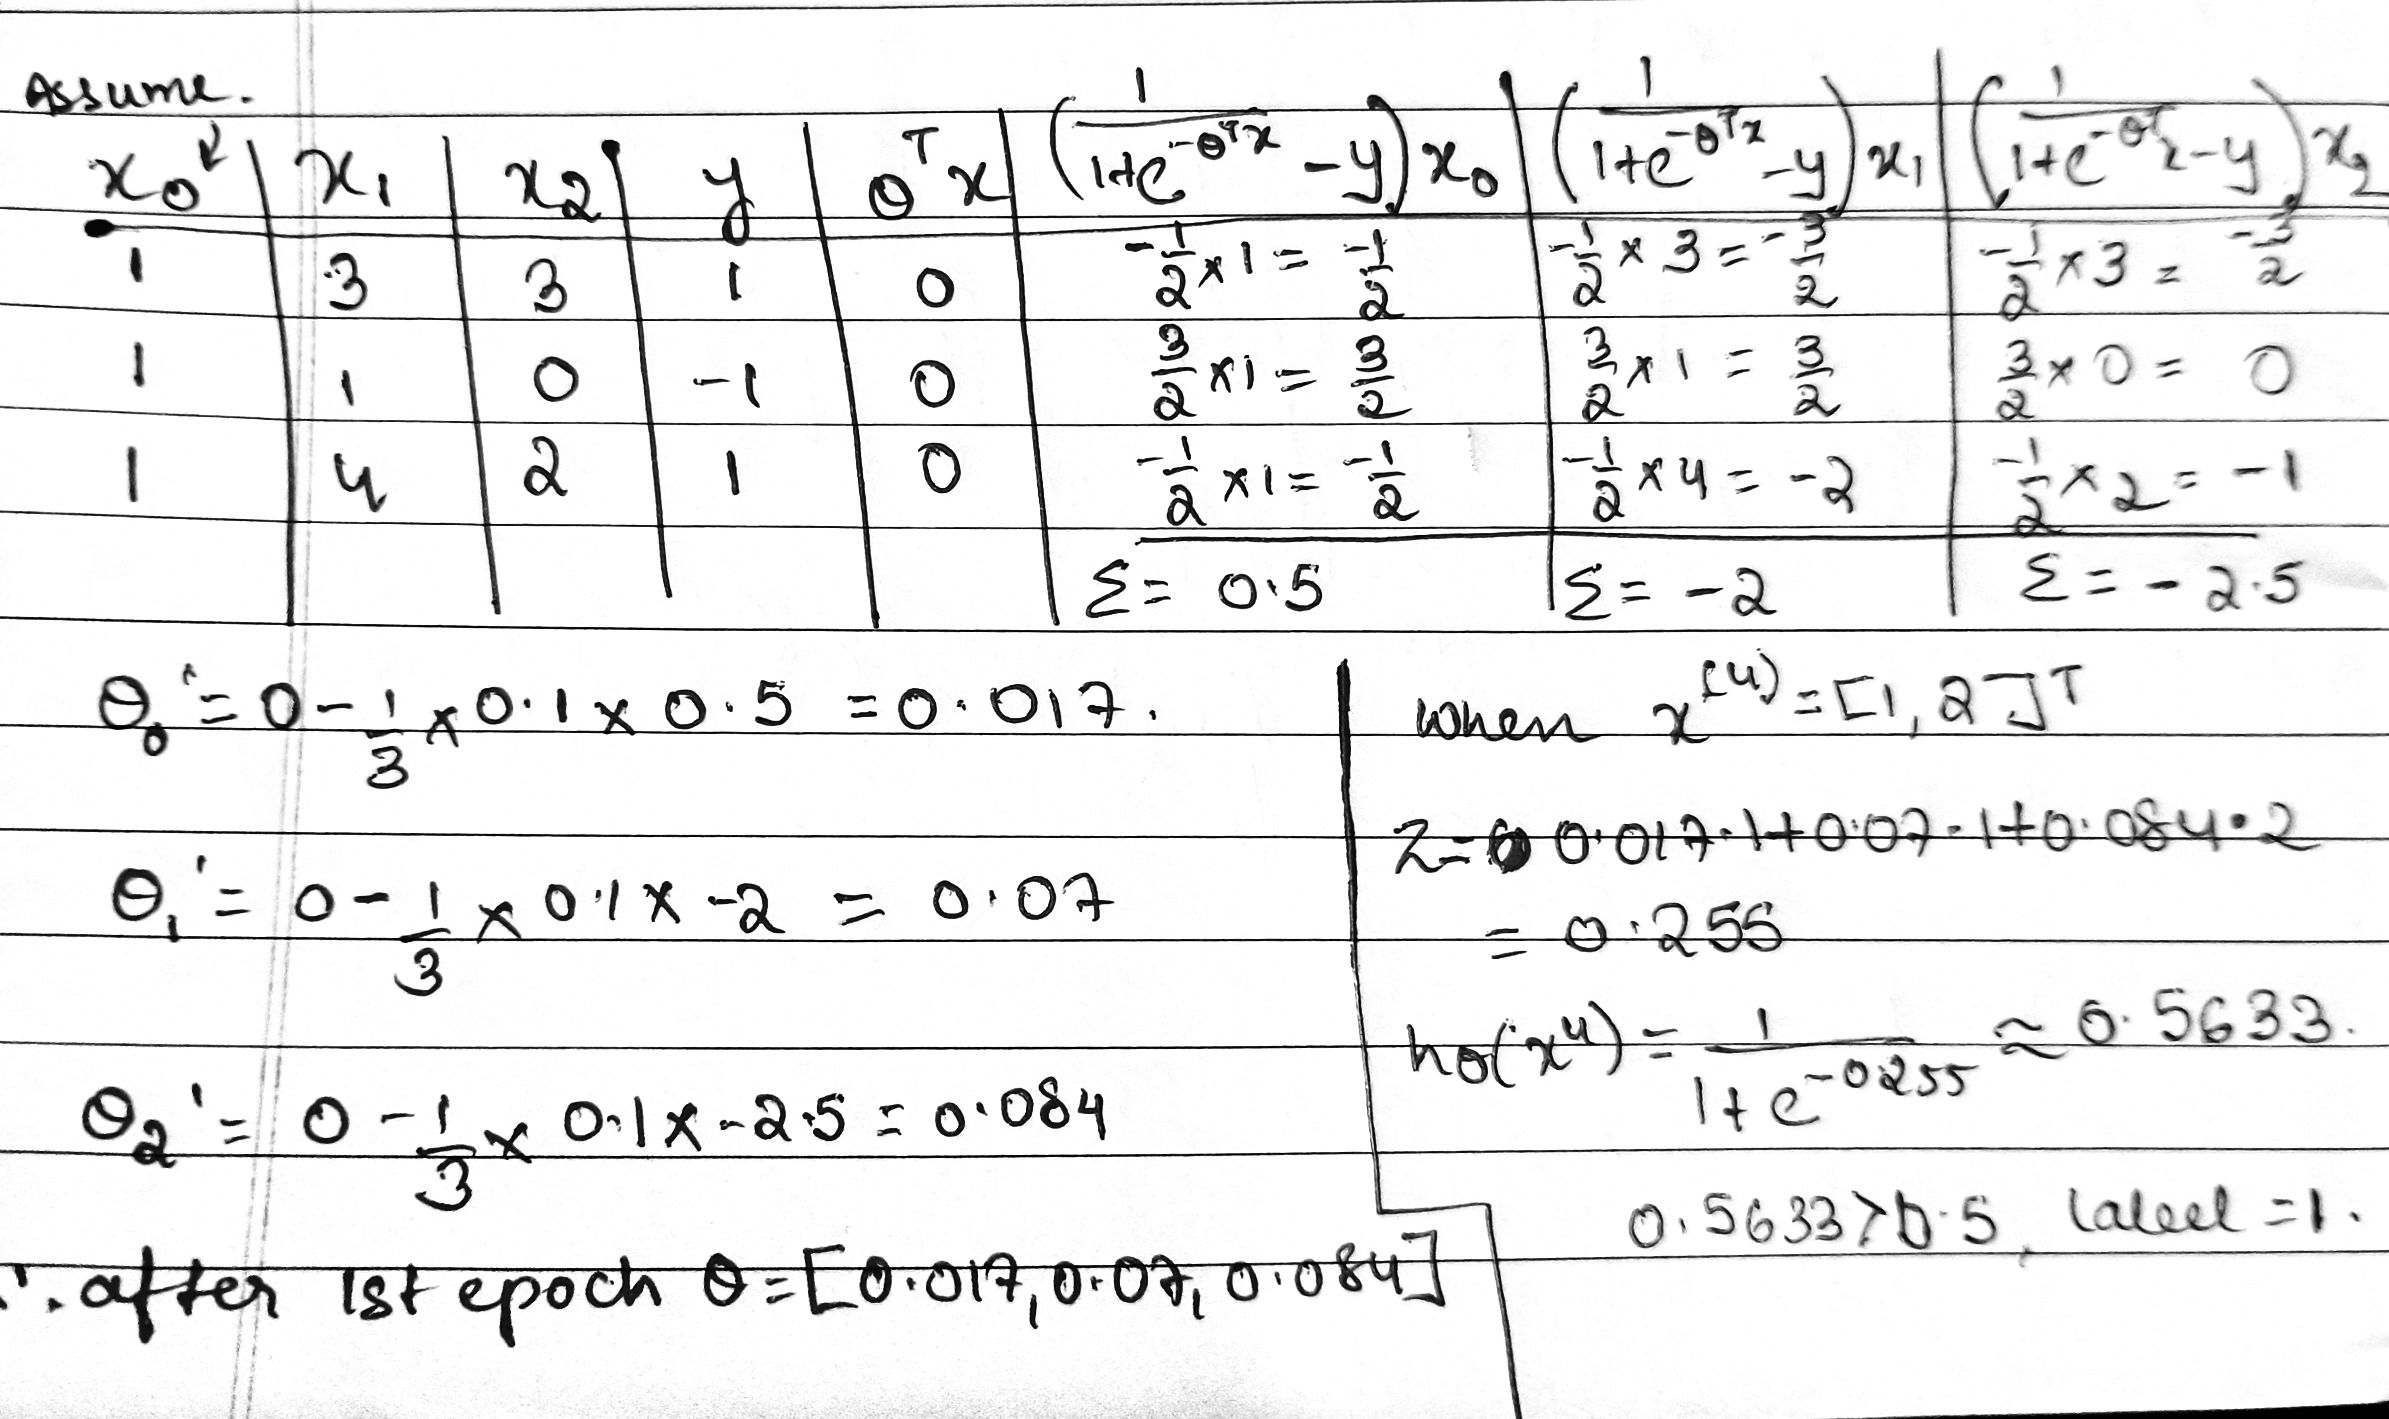 Assume.
x₀ ↙ | x₁ | x₂ | y | θᵀx | (1/(1+e^(-θᵀx)) - y) x₀ | (1/(1+e^(-θᵀx)) - y) x₁ | (1/(1+e^(-θᵀx)) - y) x₂
1 | 3 | 3 | 1 | 0 | -1/2 × 1 = -1/2 | -1/2 × 3 = -3/2 | -1/2 × 3 = -3/2
1 | 1 | 0 | -1 | 0 | 3/2 × 1 = 3/2 | 3/2 × 1 = 3/2 | 3/2 × 0 = 0
1 | 4 | 2 | 1 | 0 | -1/2 × 1 = -1/2 | -1/2 × 4 = -2 | -1/2 × 2 = -1
Σ = 0.5 | Σ = -2 | Σ = -2.5
θ₀' = 0 - 1/3 × 0.1 × 0.5 = 0.017.
θ₁' = 0 - 1/3 × 0.1 × -2 = 0.07
θ₂' = 0 - 1/3 × 0.1 × -2.5 = 0.084
∴ after 1st epoch θ = [0.017, 0.07, 0.084]
when x^(4) = [1, 2]ᵀ
z = 0.017·1 + 0.07·1 + 0.084·2
= 0.255
hθ(x⁴) = 1/(1+e^(-0.255)) ≈ 0.5633.
0.5633 > 0.5, label = 1.